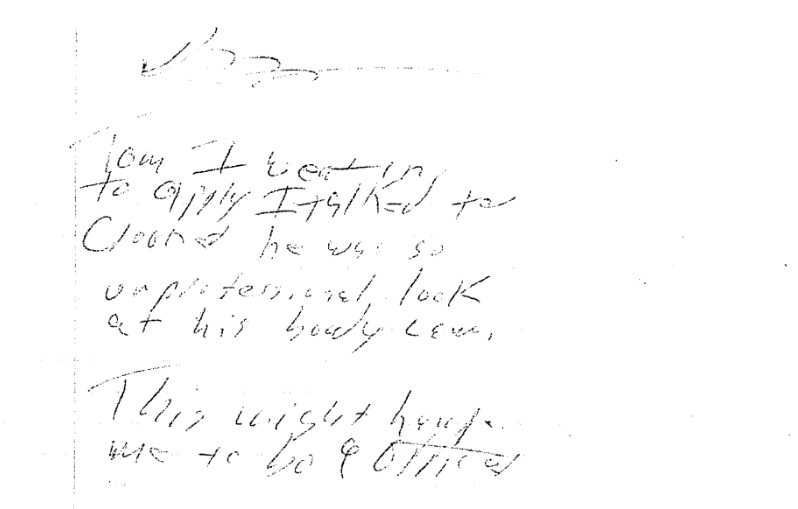 Tom I went in,
to apply I talked to
he was so
unprofessional, look
at his body
This might
me to be a